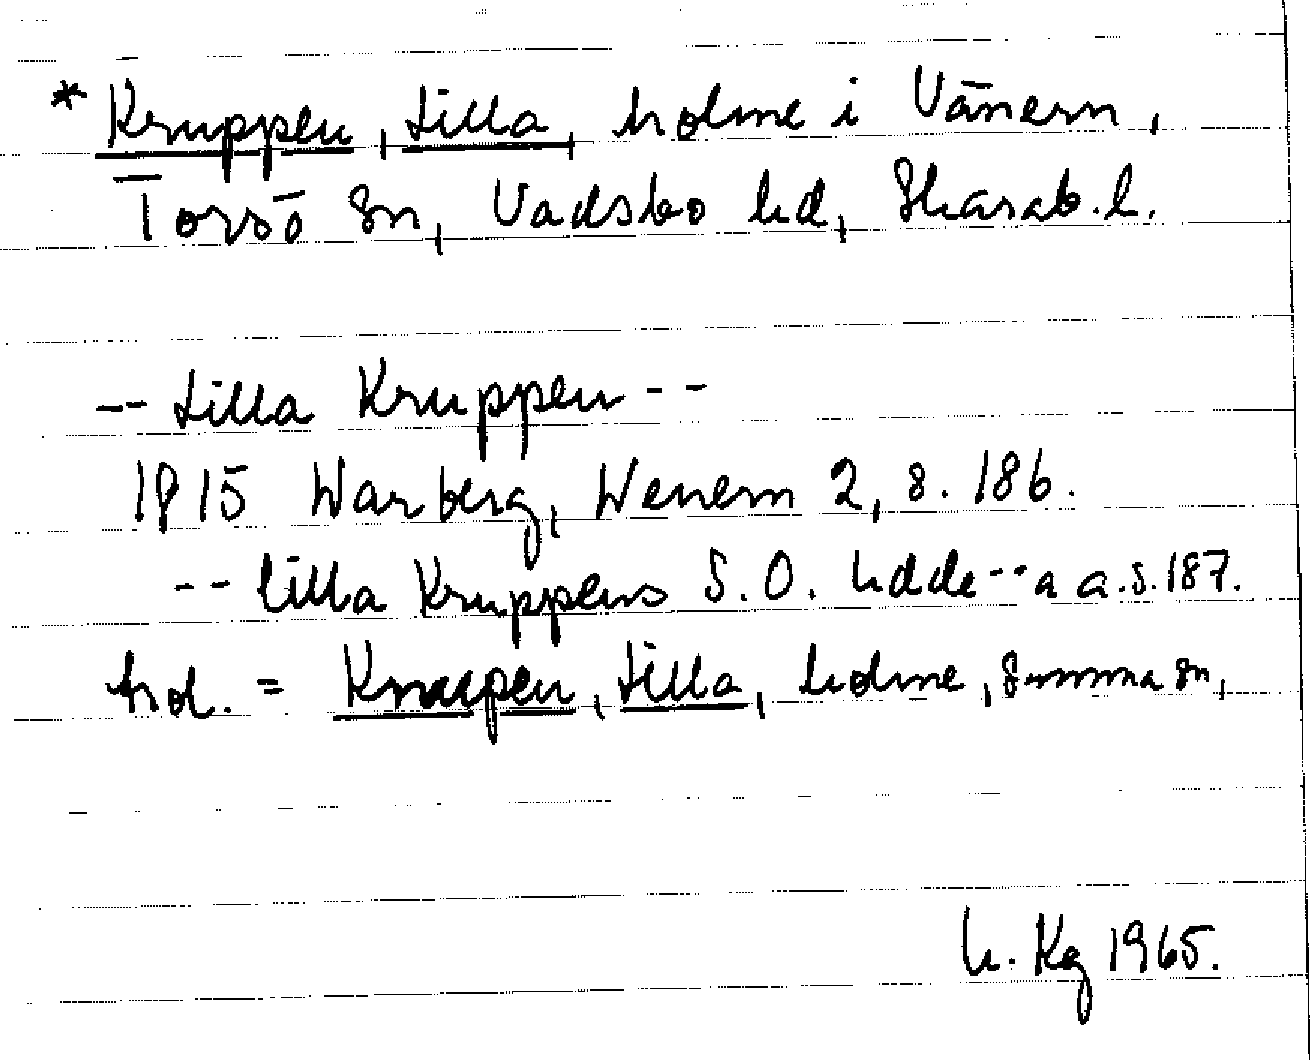 * Kruppen, Lilla, holme i Vänern,
Torsö sn, Vadsbo hd, Skarab. l.
-- Lilla Kruppen --
1815 Warberg, Wenern 2, s. 186.
-- lilla Kruppens S.O. Udde -- a a. s. 187.
hol. = Knappen, Lilla, holme, samma sn,
U. Kg 1965.